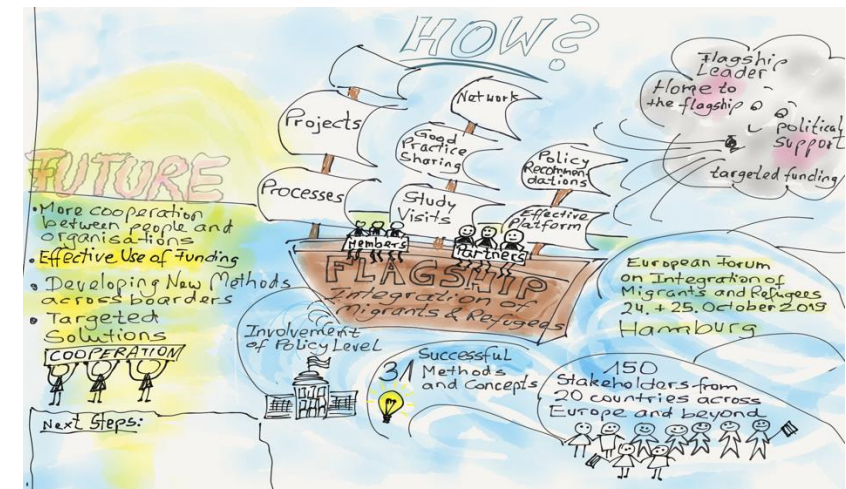 HOW?
Flagship
Leader
Home to
the flagship
political
support
targeted funding
Network
Projects
Good
Practice
Sharing
Policy
Recommen-
dations
Processes
Study
Visits
Effective
Platform
Members
Partners
FLAGSHIP
Integration of
Migrants & Refugees
FUTURE
• More cooperation
between people and
organisations
• Effective Use of Funding
• Developing New Methods
across boarders
• Targeted
Solutions
COOPERATION
Next Steps:
Involvement
of Policy Level
31 Successful
Methods
and Concepts
European Forum
on Integration of
Migrants and Refugees
24. + 25. October 2019
Hamburg
150
Stakeholders from
20 countries across
Europe and beyond